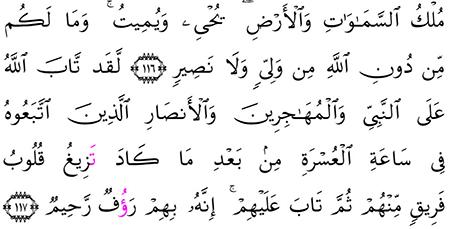 مُلْكُ ٱلسَّمَـٰوَٰتِ وَٱلْأَرْضِ ۖ يُحْىِۦ وَيُمِيتُ ۚ وَمَا لَكُم
مِّن دُونِ ٱللَّهِ مِن وَلِىٍّ وَلَا نَصِيرٍ ﴿١١٦﴾ لَّقَد تَّابَ ٱللَّهُ
عَلَى ٱلنَّبِىِّ وَٱلْمُهَـٰجِرِينَ وَٱلْأَنصَارِ ٱلَّذِينَ ٱتَّبَعُوهُ
فِى سَاعَةِ ٱلْعُسْرَةِ مِنۢ بَعْدِ مَا كَادَ تَزِيغُ قُلُوبُ
فَرِيقٍ مِّنْهُمْ ثُمَّ تَابَ عَلَيْهِمْ ۚ إِنَّهُۥ بِهِمْ رَؤُفٌ رَّحِيمٌ ﴿١١٧﴾